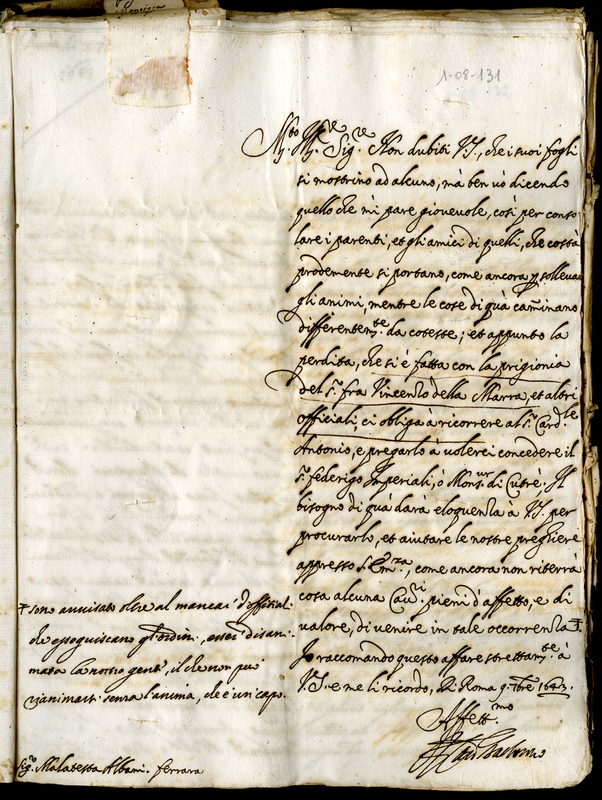 1-08-131
M.to Ill.re Sig.re Non dubiti V.S., che i suoi fogli
si mostrino ad alcuno, mà ben uò dicendo
quello che mi pare gioueuole, così per conso
lare i parenti, et gli amici di quelli, che costà
prodemente si portano, come ancora p solleuar
gli animi, mentre le cose di quà caminano
differentem.te da coteste; et appunto la
perdita, che si è fatta con la prigionia
del s.r fra Vincenzo della Marra, et altri
officiali, ci obliga à ricorrere al s.r Card.le
Antonio, e pregarlo à uolerci concedere il
s.r federigo Imperiali, ò Mons.ur di Cutrè; Il
bisogno di quà darà eloquenza à V.S. per
procurarlo, et aiutare le nostre preghiere
appresso S. Em.za, come ancora non riterrà
cosa alcuna Cau.ri pieni d'affetto, e di
ualore, di uenire in tale occorrenza
Io raccomando questo affare strettam.te à
V.S. e me li ricordo, Di Roma 9.bre 1643.
Affett.mo
sono auuisato oltre al mancar d'official:
che eseguiscano gl'ordini, esser disani:
mata la nostra gente, il che non può
rianimarsi senza l'anima, che è un capo.
Sig.r Malatesta Albani. ferrara